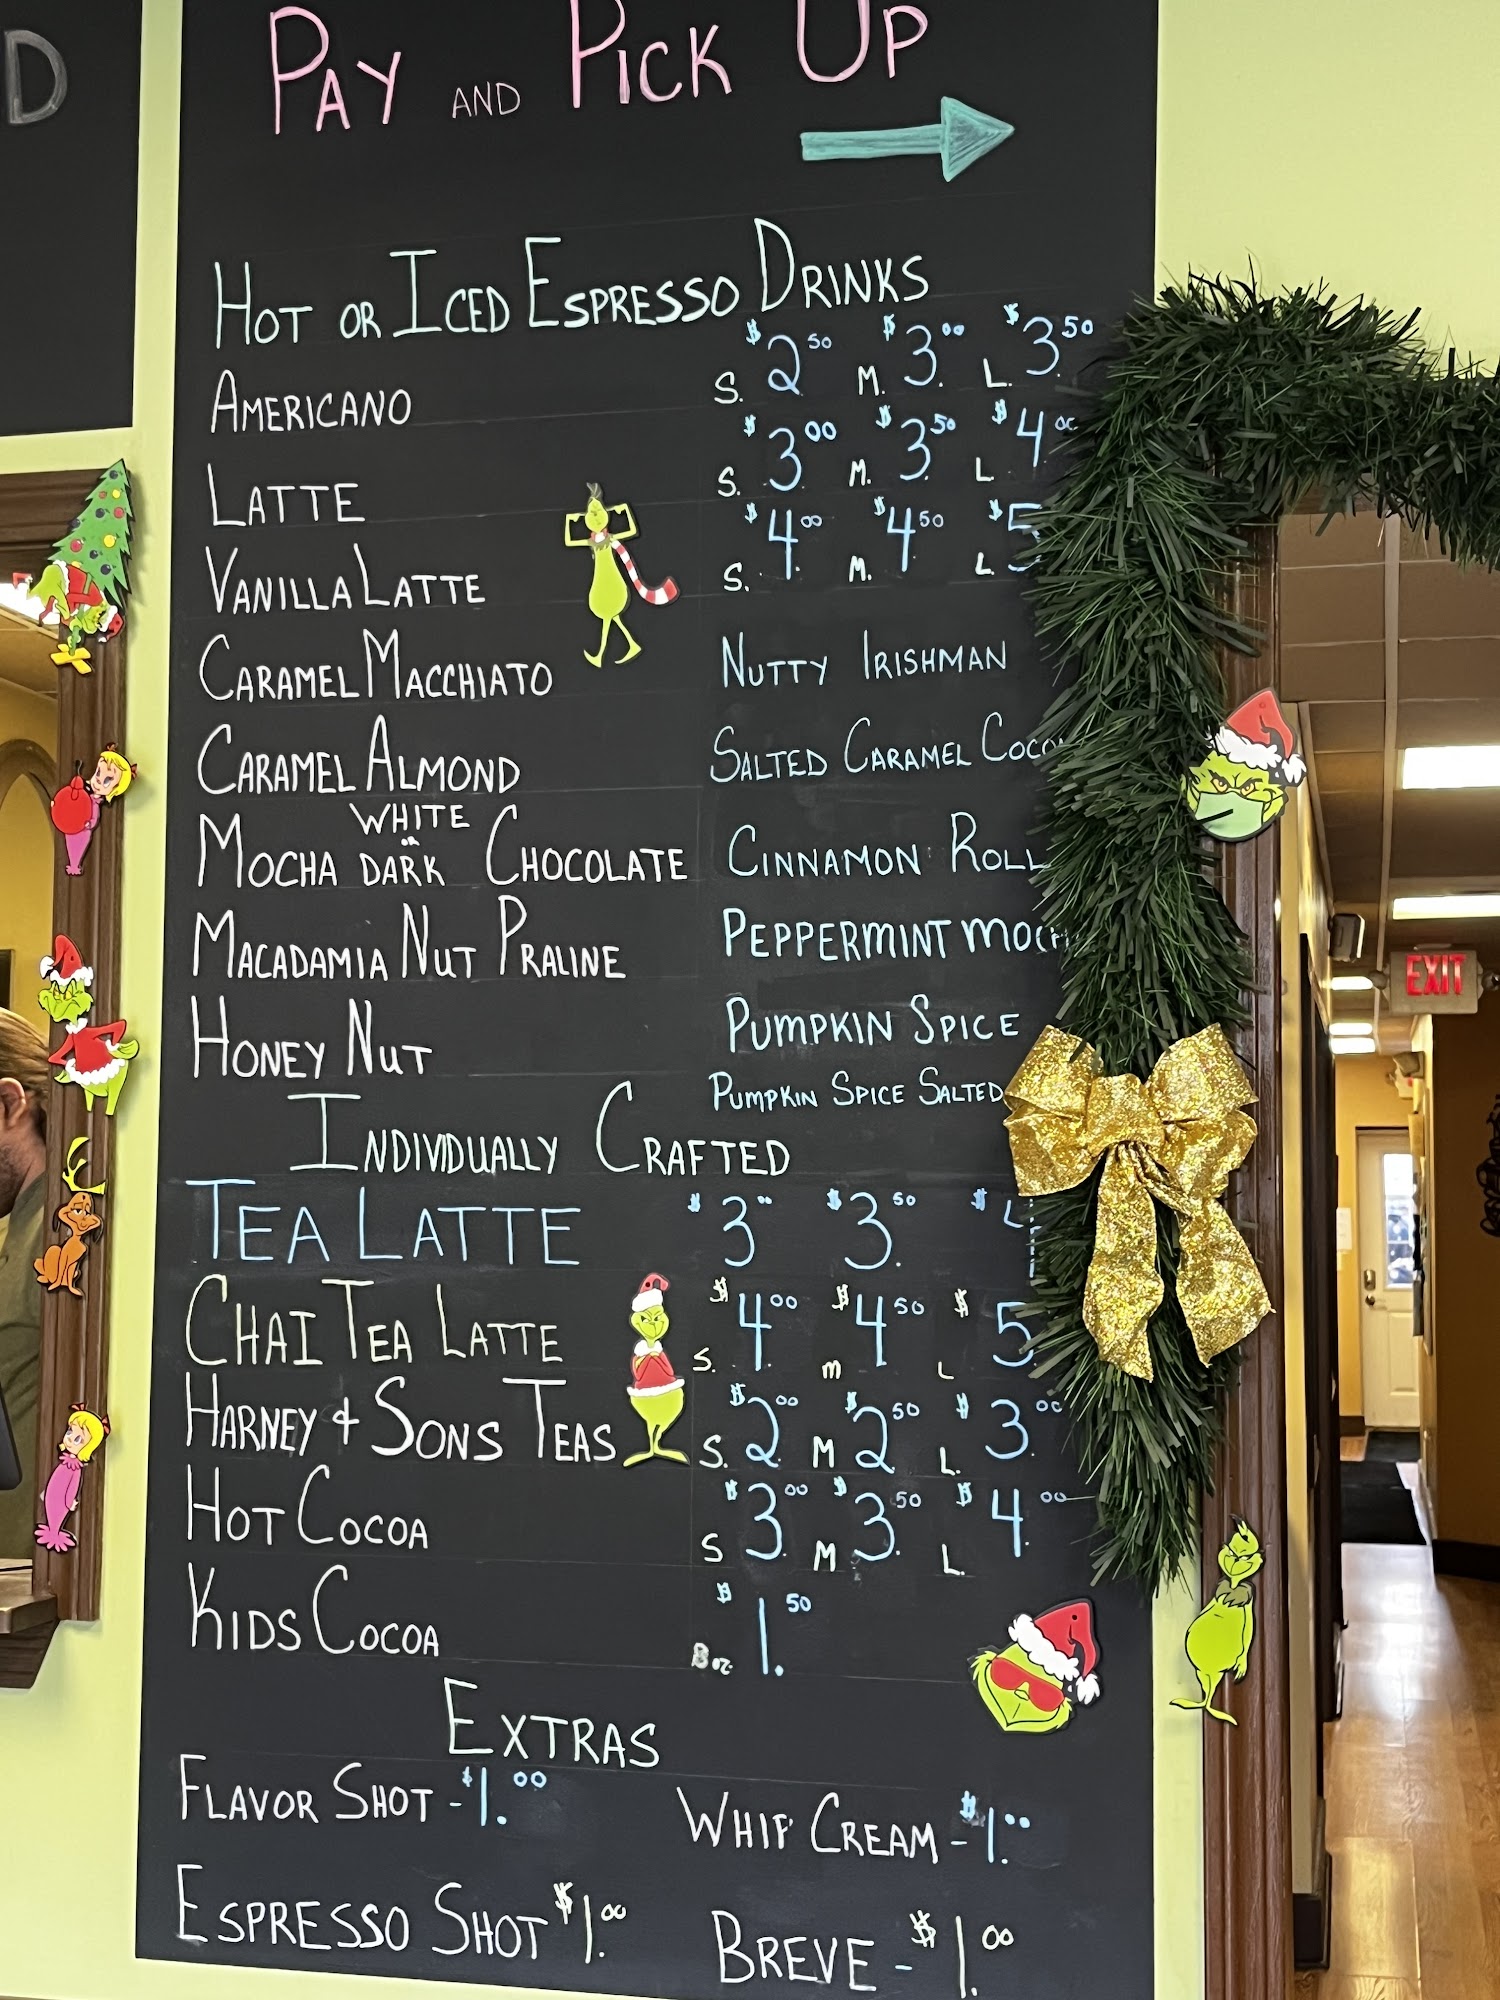 D
PAY AND PICK UP
HOT OR ICED ESPRESSO DRINKS
AMERICANO S. $2.50 M. $3.00 L. $3.50
LATTE S. $3.00 M. $3.50 L $4.00
VANILLA LATTE S. $4.00 M. $4.50 L. $5
CARAMEL MACCHIATO NUTTY IRISHMAN
CARAMEL ALMOND SALTED CARAMEL
MOCHA WHITE OR DARK CHOCOLATE CINNAMON ROLL
MACADAMIA NUT PRALINE PEPPERMINT
HONEY NUT PUMPKIN SPICE
PUMPKIN SPICE SALTED
INDIVIDUALLY CRAFTED
TEA LATTE $3.00 $3.50 $4
CHAI TEA LATTE S. $4.00 M $4.50 L $5.
HARNEY + SONS TEAS S. $2.00 M $2.50 L. $3.00
HOT COCOA S $3.00 M $3.50 L. $4.00
KIDS COCOA 8oz. $1.50
EXTRAS
FLAVOR SHOT - $1.00 WHIP CREAM - $1.00
ESPRESSO SHOT $1.00 BREVE - $1.00
EXIT